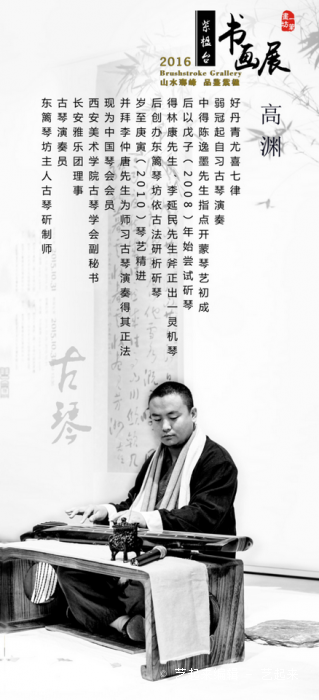 2016
书画展
Brushstroke Grallery
高渊
好丹青尤喜七律
弱冠起自习古琴演奏
中得陈逸墨先生指点开蒙琴艺初成
后以戊子（2008）年始尝试斫琴
得林康先生、李延民先生斧正出一灵机琴
后创办东篱琴坊依古法研析斫琴
岁至庚寅（2010）琴艺精进
并拜李仲唐先生为师习古琴演奏得其正法
现为中国琴会会员
西安美术学院古琴学会副秘书
长安雅乐团理事
古琴演奏员
东篱琴坊主人古琴斫制师
古琴